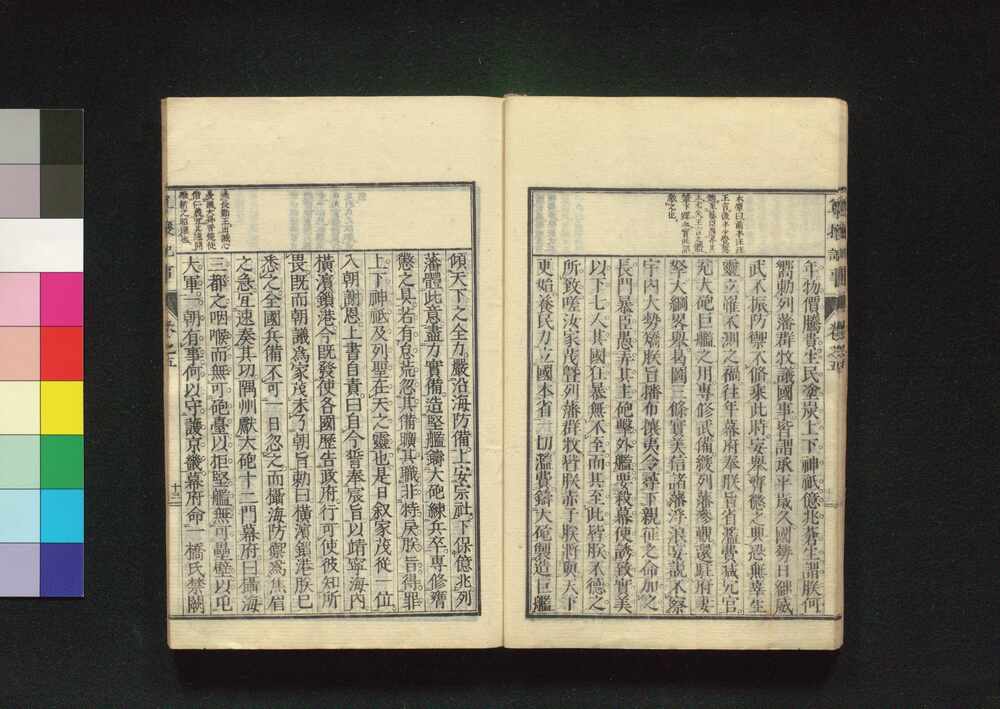 年物價騰貴生民塗炭上下神祇億兆蒼生謂朕何
嚮勅列藩群牧議國事皆謂承平歲久國勢日衰威
武不振防禦不脩乘此時安衆齊德之輿恐無幸生
靈立罹不測之禍往年幕府奉朕旨省濫費減冗官
充大砲巨艦之用專修武備緩列藩參覲還駐府妻
孥大綱畧舉曷圖三條實美信諸藩浮浪妄説不察
宇內大勢矯朕旨播布攘夷令尋下親征之命加之
長門暴臣愚弄其主砲擊外艦要殺幕使誘致實美
以下七人其國狂暴無不至而其至此皆朕不德之
所致嗟汝家茂曁列藩群牧皆朕赤子朕將與天下
更始養民力立國本省一切濫費鑄大砲製造巨艦
傾天下之全力嚴沿海防備上安宗社下保億兆列
藩體此意盡力實備造堅艦鑄大砲練兵卒專修膺
懲之具若有怠荒忽其備曠其職非特戾朕旨得罪
上下神祇及列聖在天之靈也是日叙家茂從一位
入朝謝恩上書自責曰自今誓奉宸旨以靖寧海內
橫濱鎖港今既發使各國歷告政府行可使彼知所
畏既而朝議爲家茂未了朝旨勅曰橫濱鎖港朕已
悉之全國兵備不可一日忽之而攝海防禦爲焦眉
之急宜速奏其功隅州獻大砲十二門幕府曰攝海
三都之咽喉而無可砲臺以拒堅艦無可壘壁以屯
大軍一朝有事何以守護京畿幕府命一橋氏禁闕